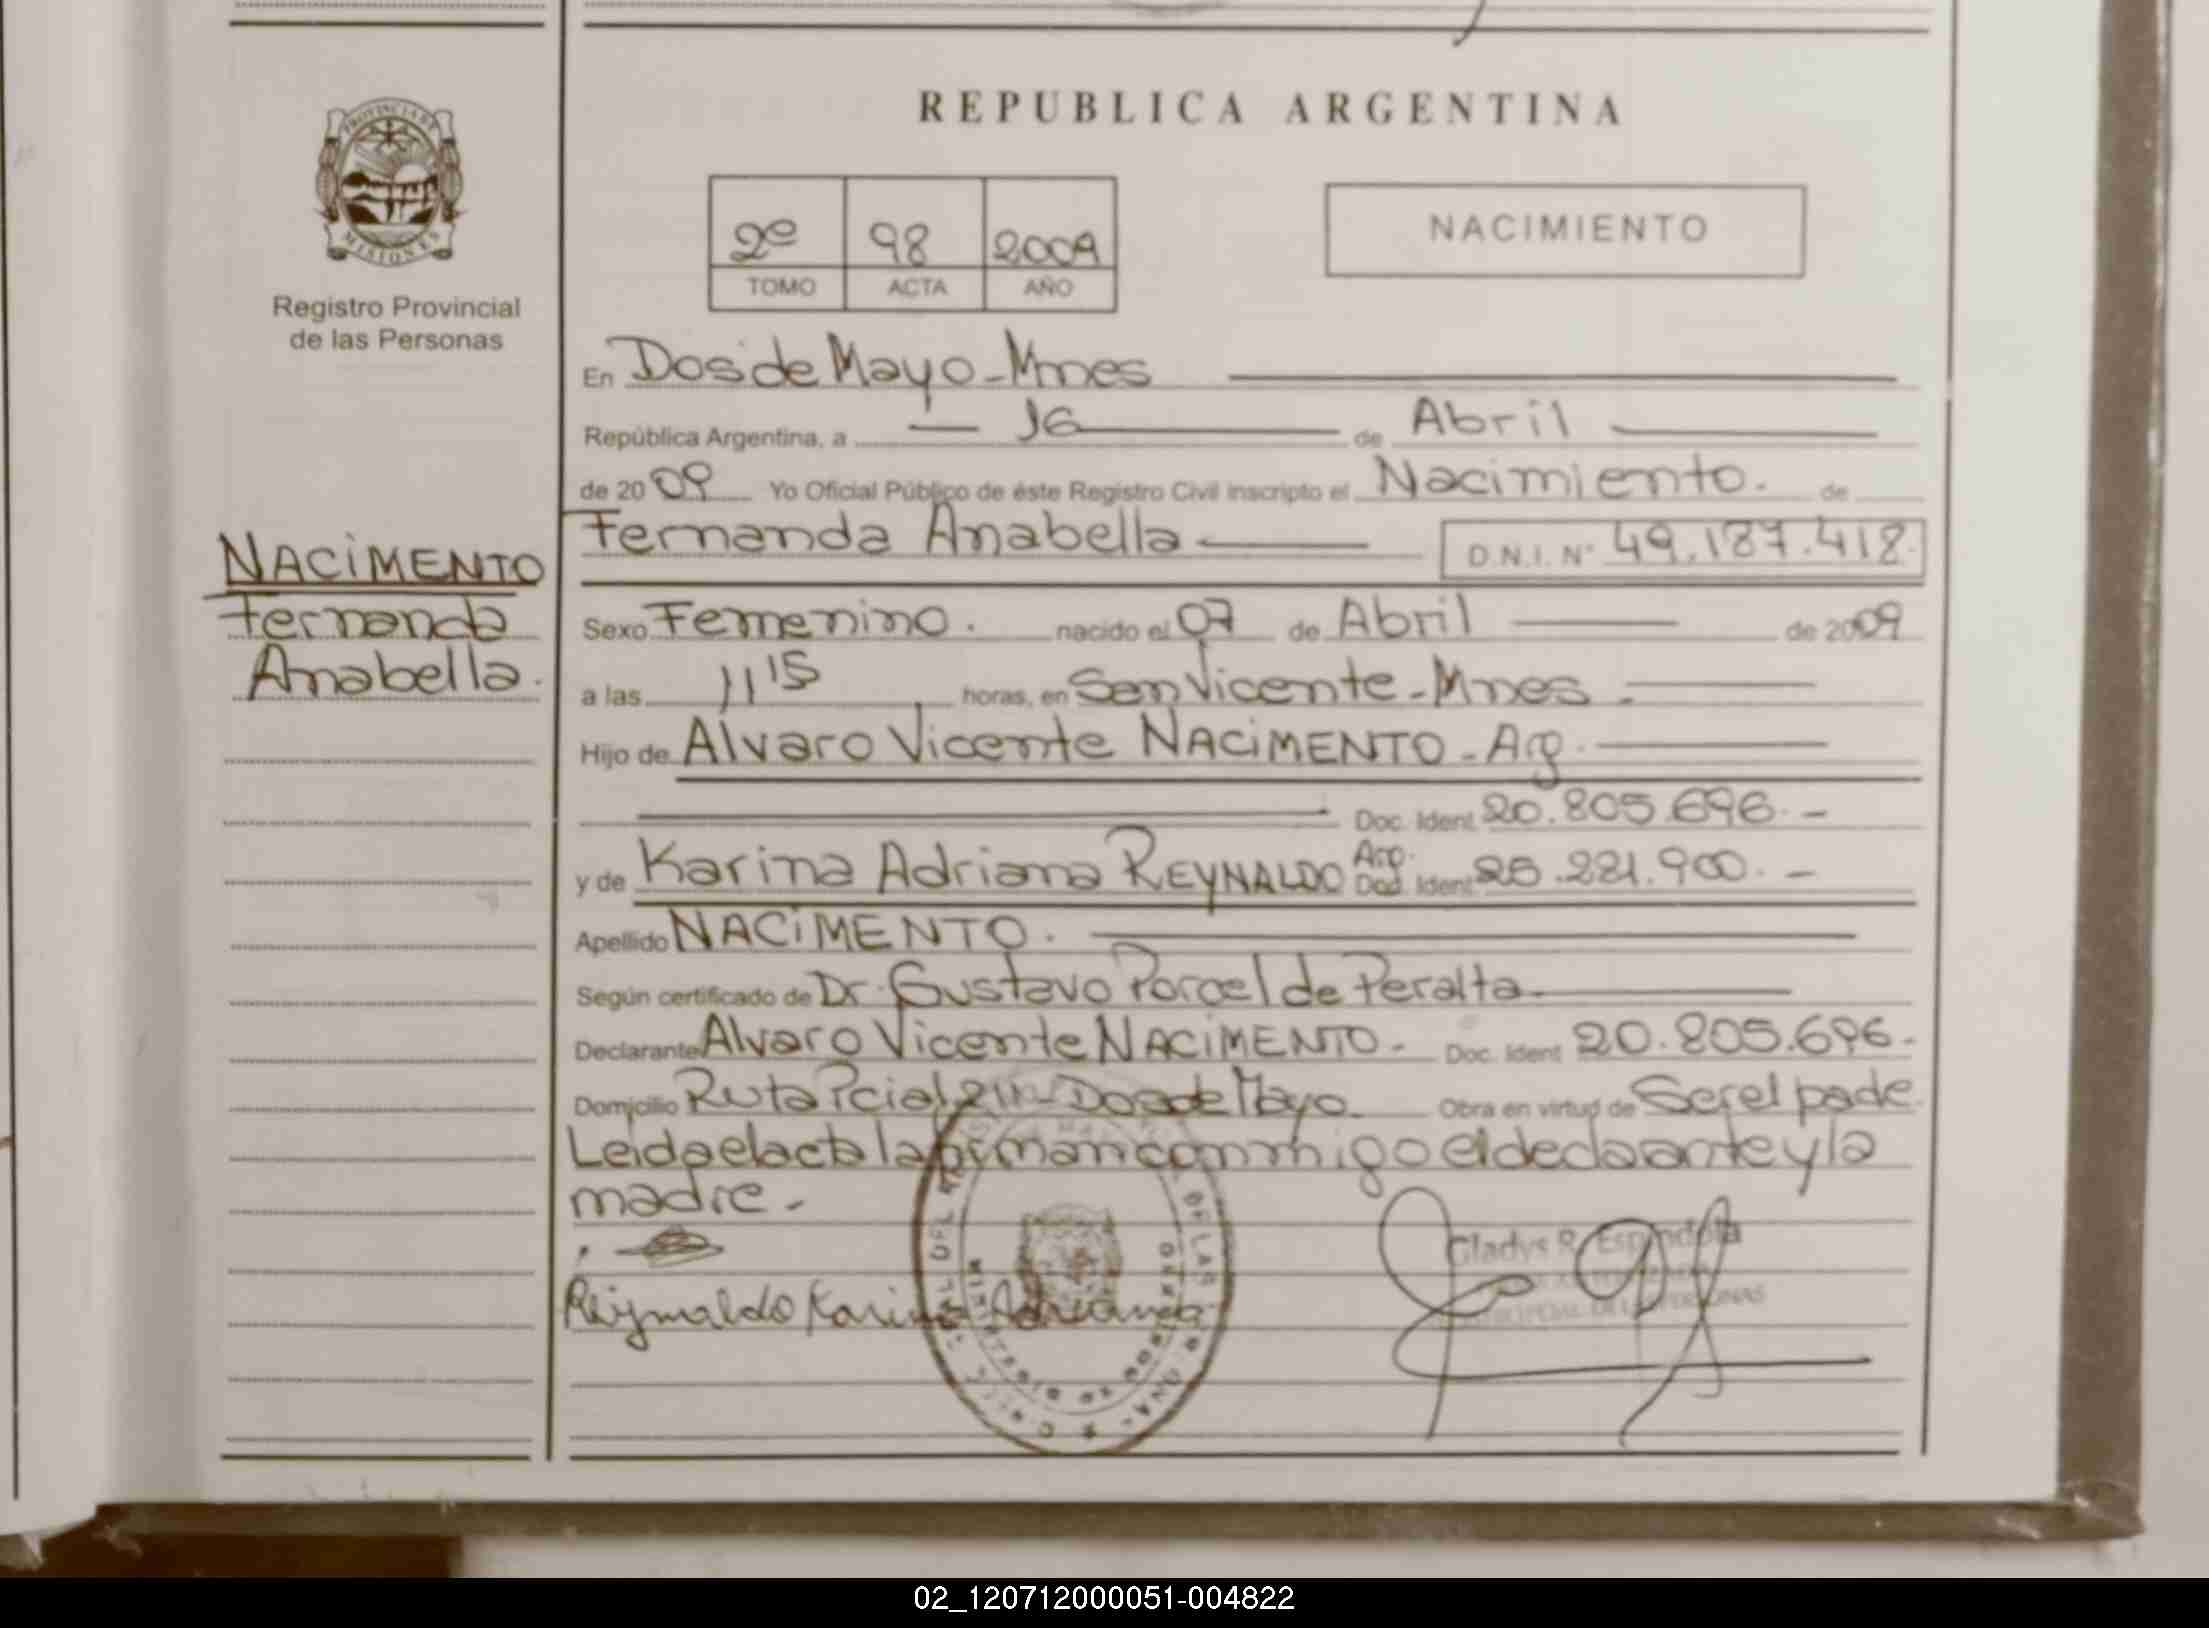 REPUBLICA ARGENTINA
PROVINCIA DE
MISIONES
Registro Provincial
de las Personas
2º 98 2009
TOMO ACTA AÑO
NACIMIENTO
En Dos de Mayo - Mnes
República Argentina, a 16 de Abril
de 2009 Yo Oficial Público de éste Registro Civil inscripto el Nacimiento. de
Fernanda Anabella D.N.I. Nº 49.187.418.
NACIMENTO
Fernanda
Anabella.
Sexo Femenino. nacido el 07 de Abril de 2009
a las 11 15 horas, en San Vicente - Mnes -
Hijo de Alvaro Vicente NACIMENTO - Arg.
Doc. Ident. 20.805.696. -
y de Karina Adriana REYNALDO Arg. Doc. Ident. 25.221.900. -
Apellido NACIMENTO.
Según certificado de Dr. Gustavo Porcel de Peralta
Declarante Alvaro Vicente NACIMENTO - Doc. Ident 20.805.696.-
Domicilio Ruta Pcial Dos de Mayo Obra en virtud de Ser el padre
Leida el acta la firman conmigo el declarante y la
madre. -
Reijnaldo Karina Adriana
Gladys R. Espindola
DE LAS PERSONAS
02_120712000051-004822